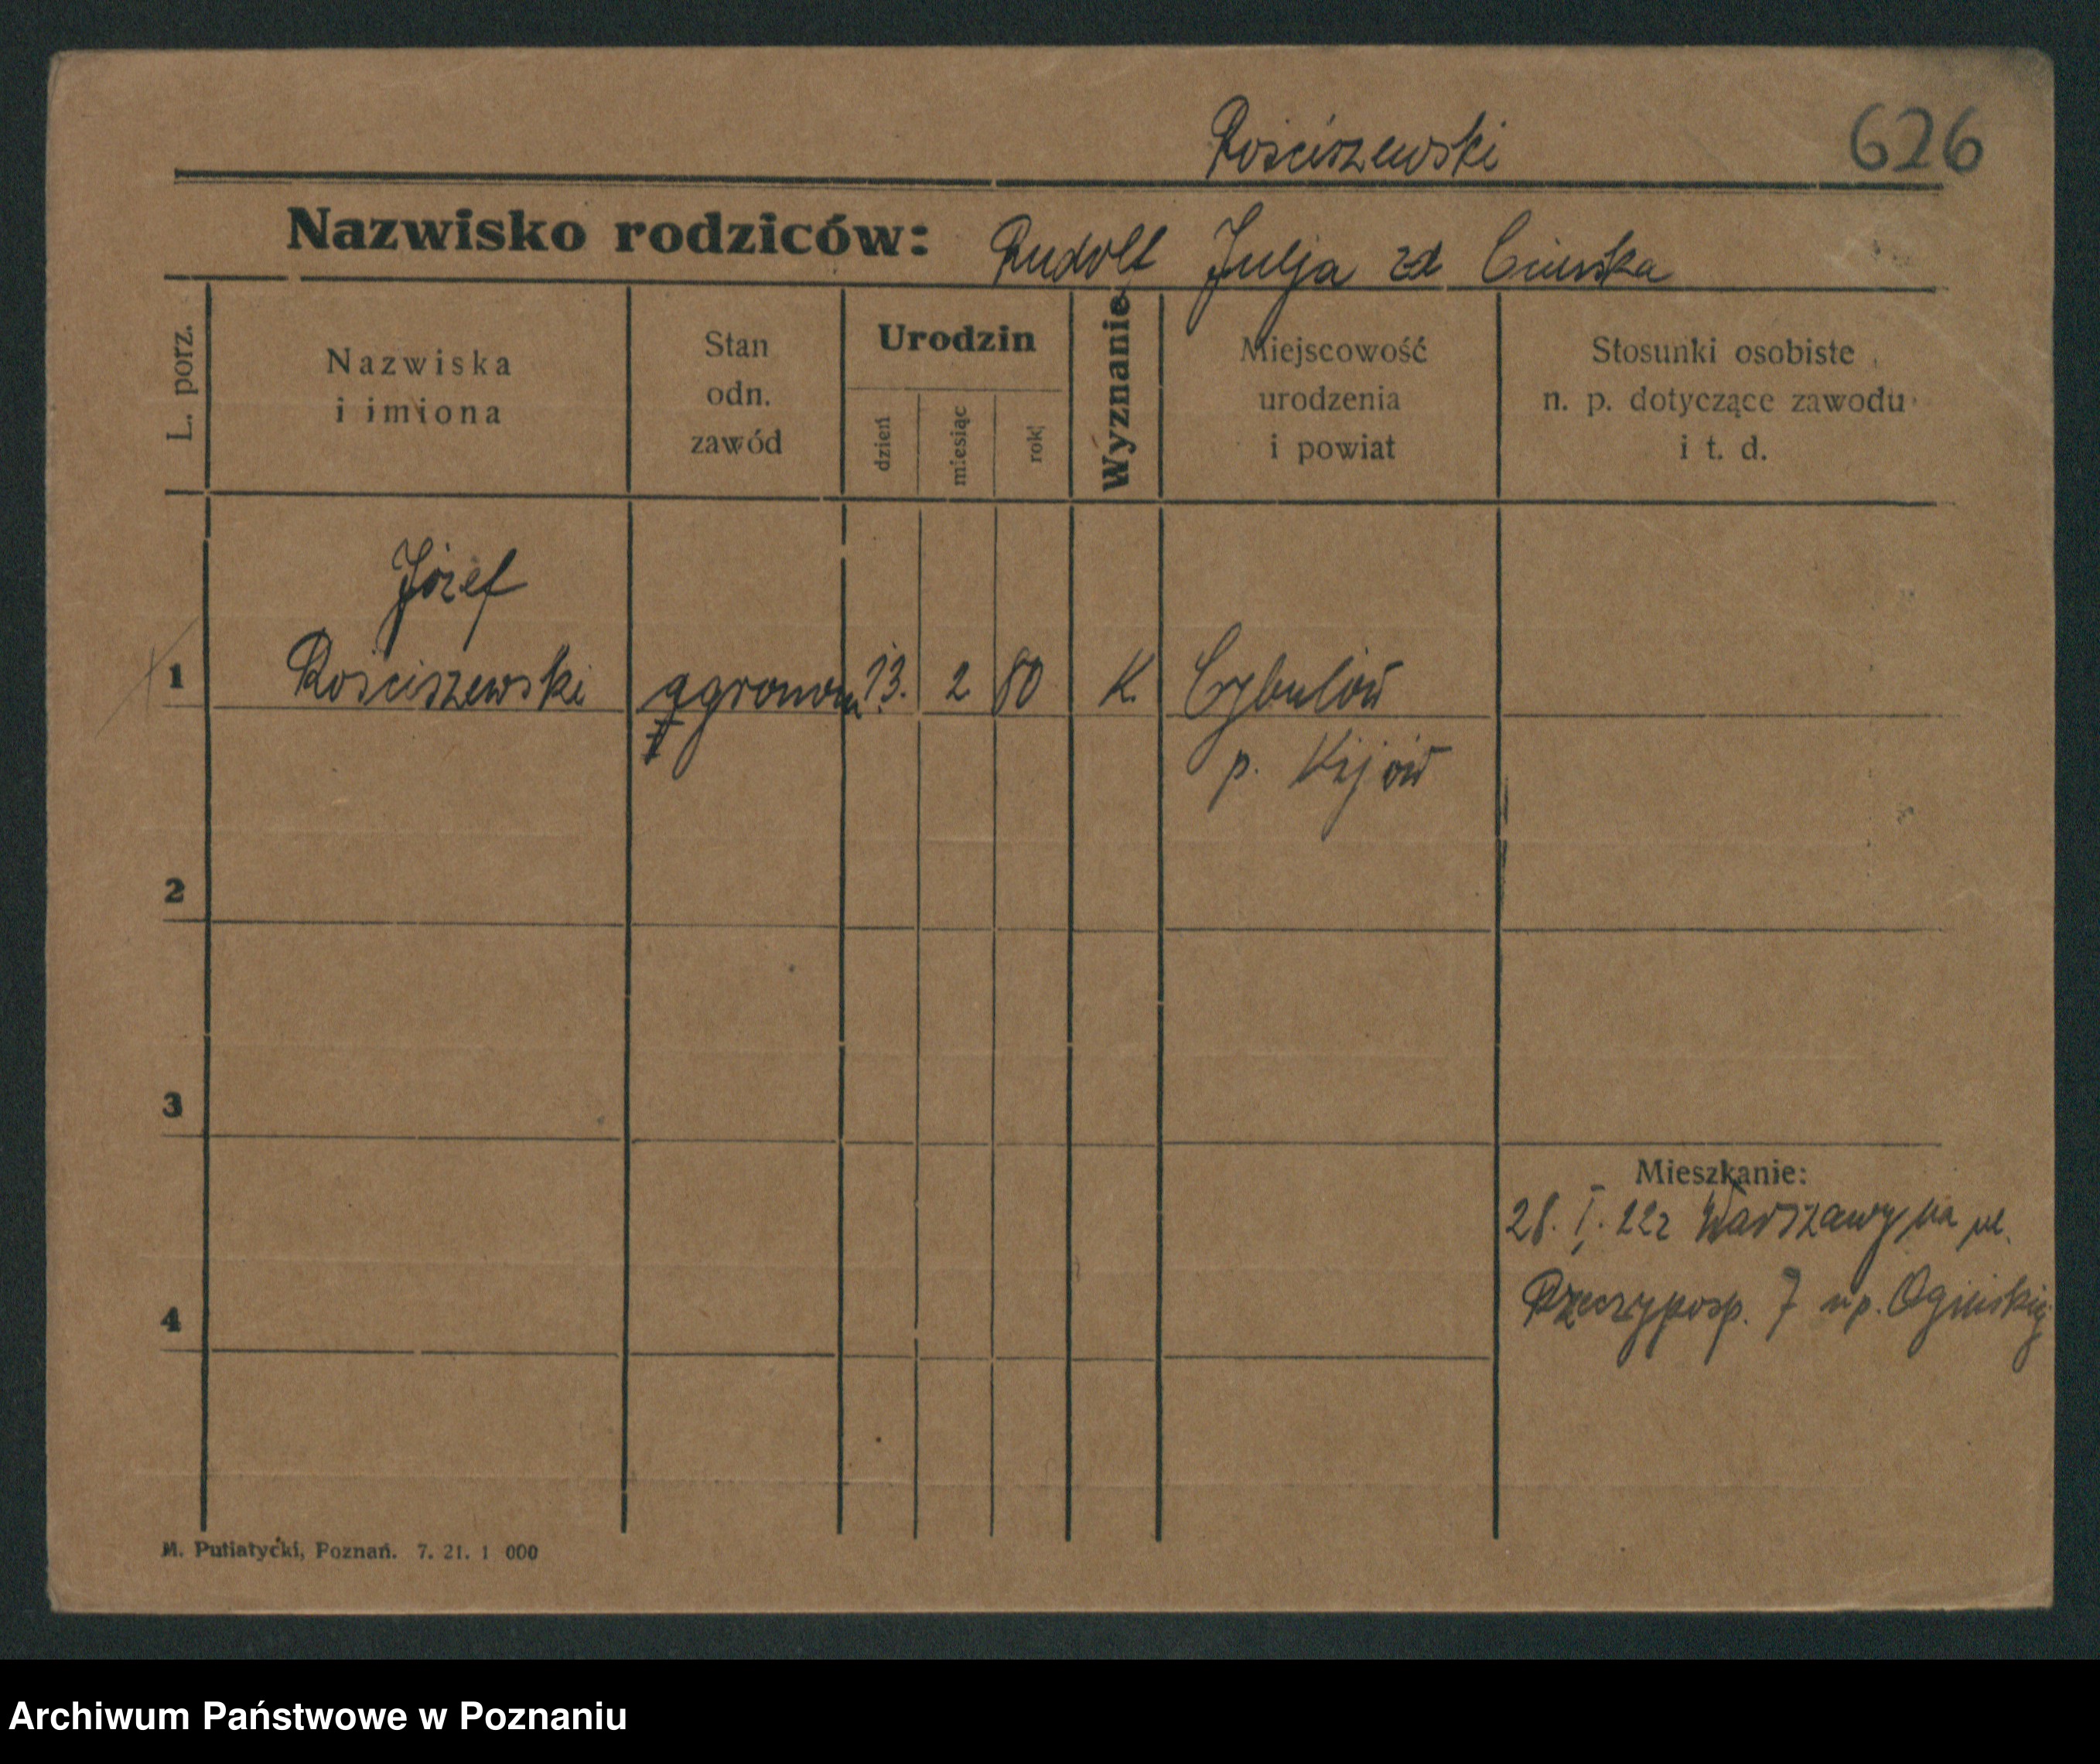 Rościszewski 626
Nazwisko rodziców: Rudolf Julja zd
L. porz.
Nazwiska
i imiona
Stan
odn.
zawód
Urodzin
dzień
miesiąc
rok
Wyznanie
Miejscowość
urodzenia
i powiat
Stosunki osobiste
n. p. dotyczące zawodu
i t. d.
Józef
1 Rościszewski agronom 13. 2 80 K. Cybulów
p. Kijów
2
3
Mieszkanie:
28. I. 22 z Warszawy na ul.
4 Rzeczyposp. 7 u p.
M. Putiatycki, Poznań. 7. 21. 1 000
Archiwum Państwowe w Poznaniu